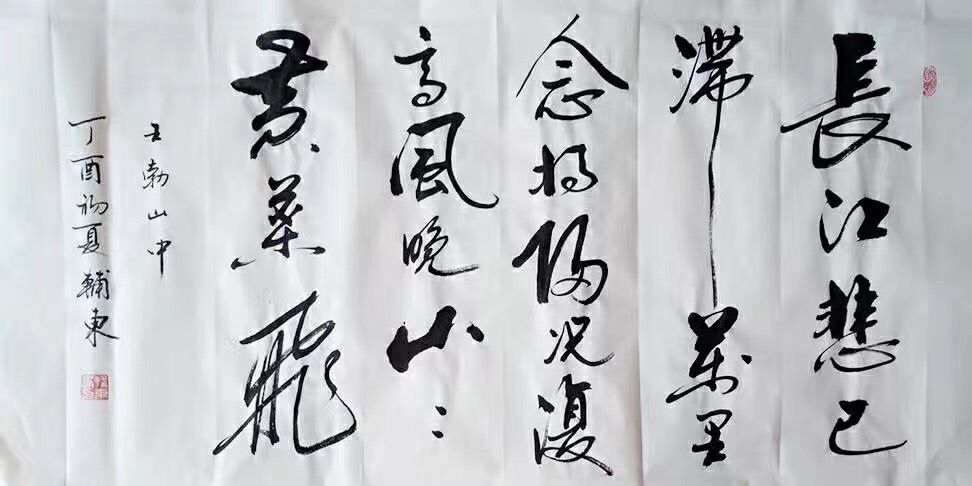 長江悲已
滯萬里
念将歸况復
高風晚山〻
黄葉飛
王勃山中
丁酉初夏輔東